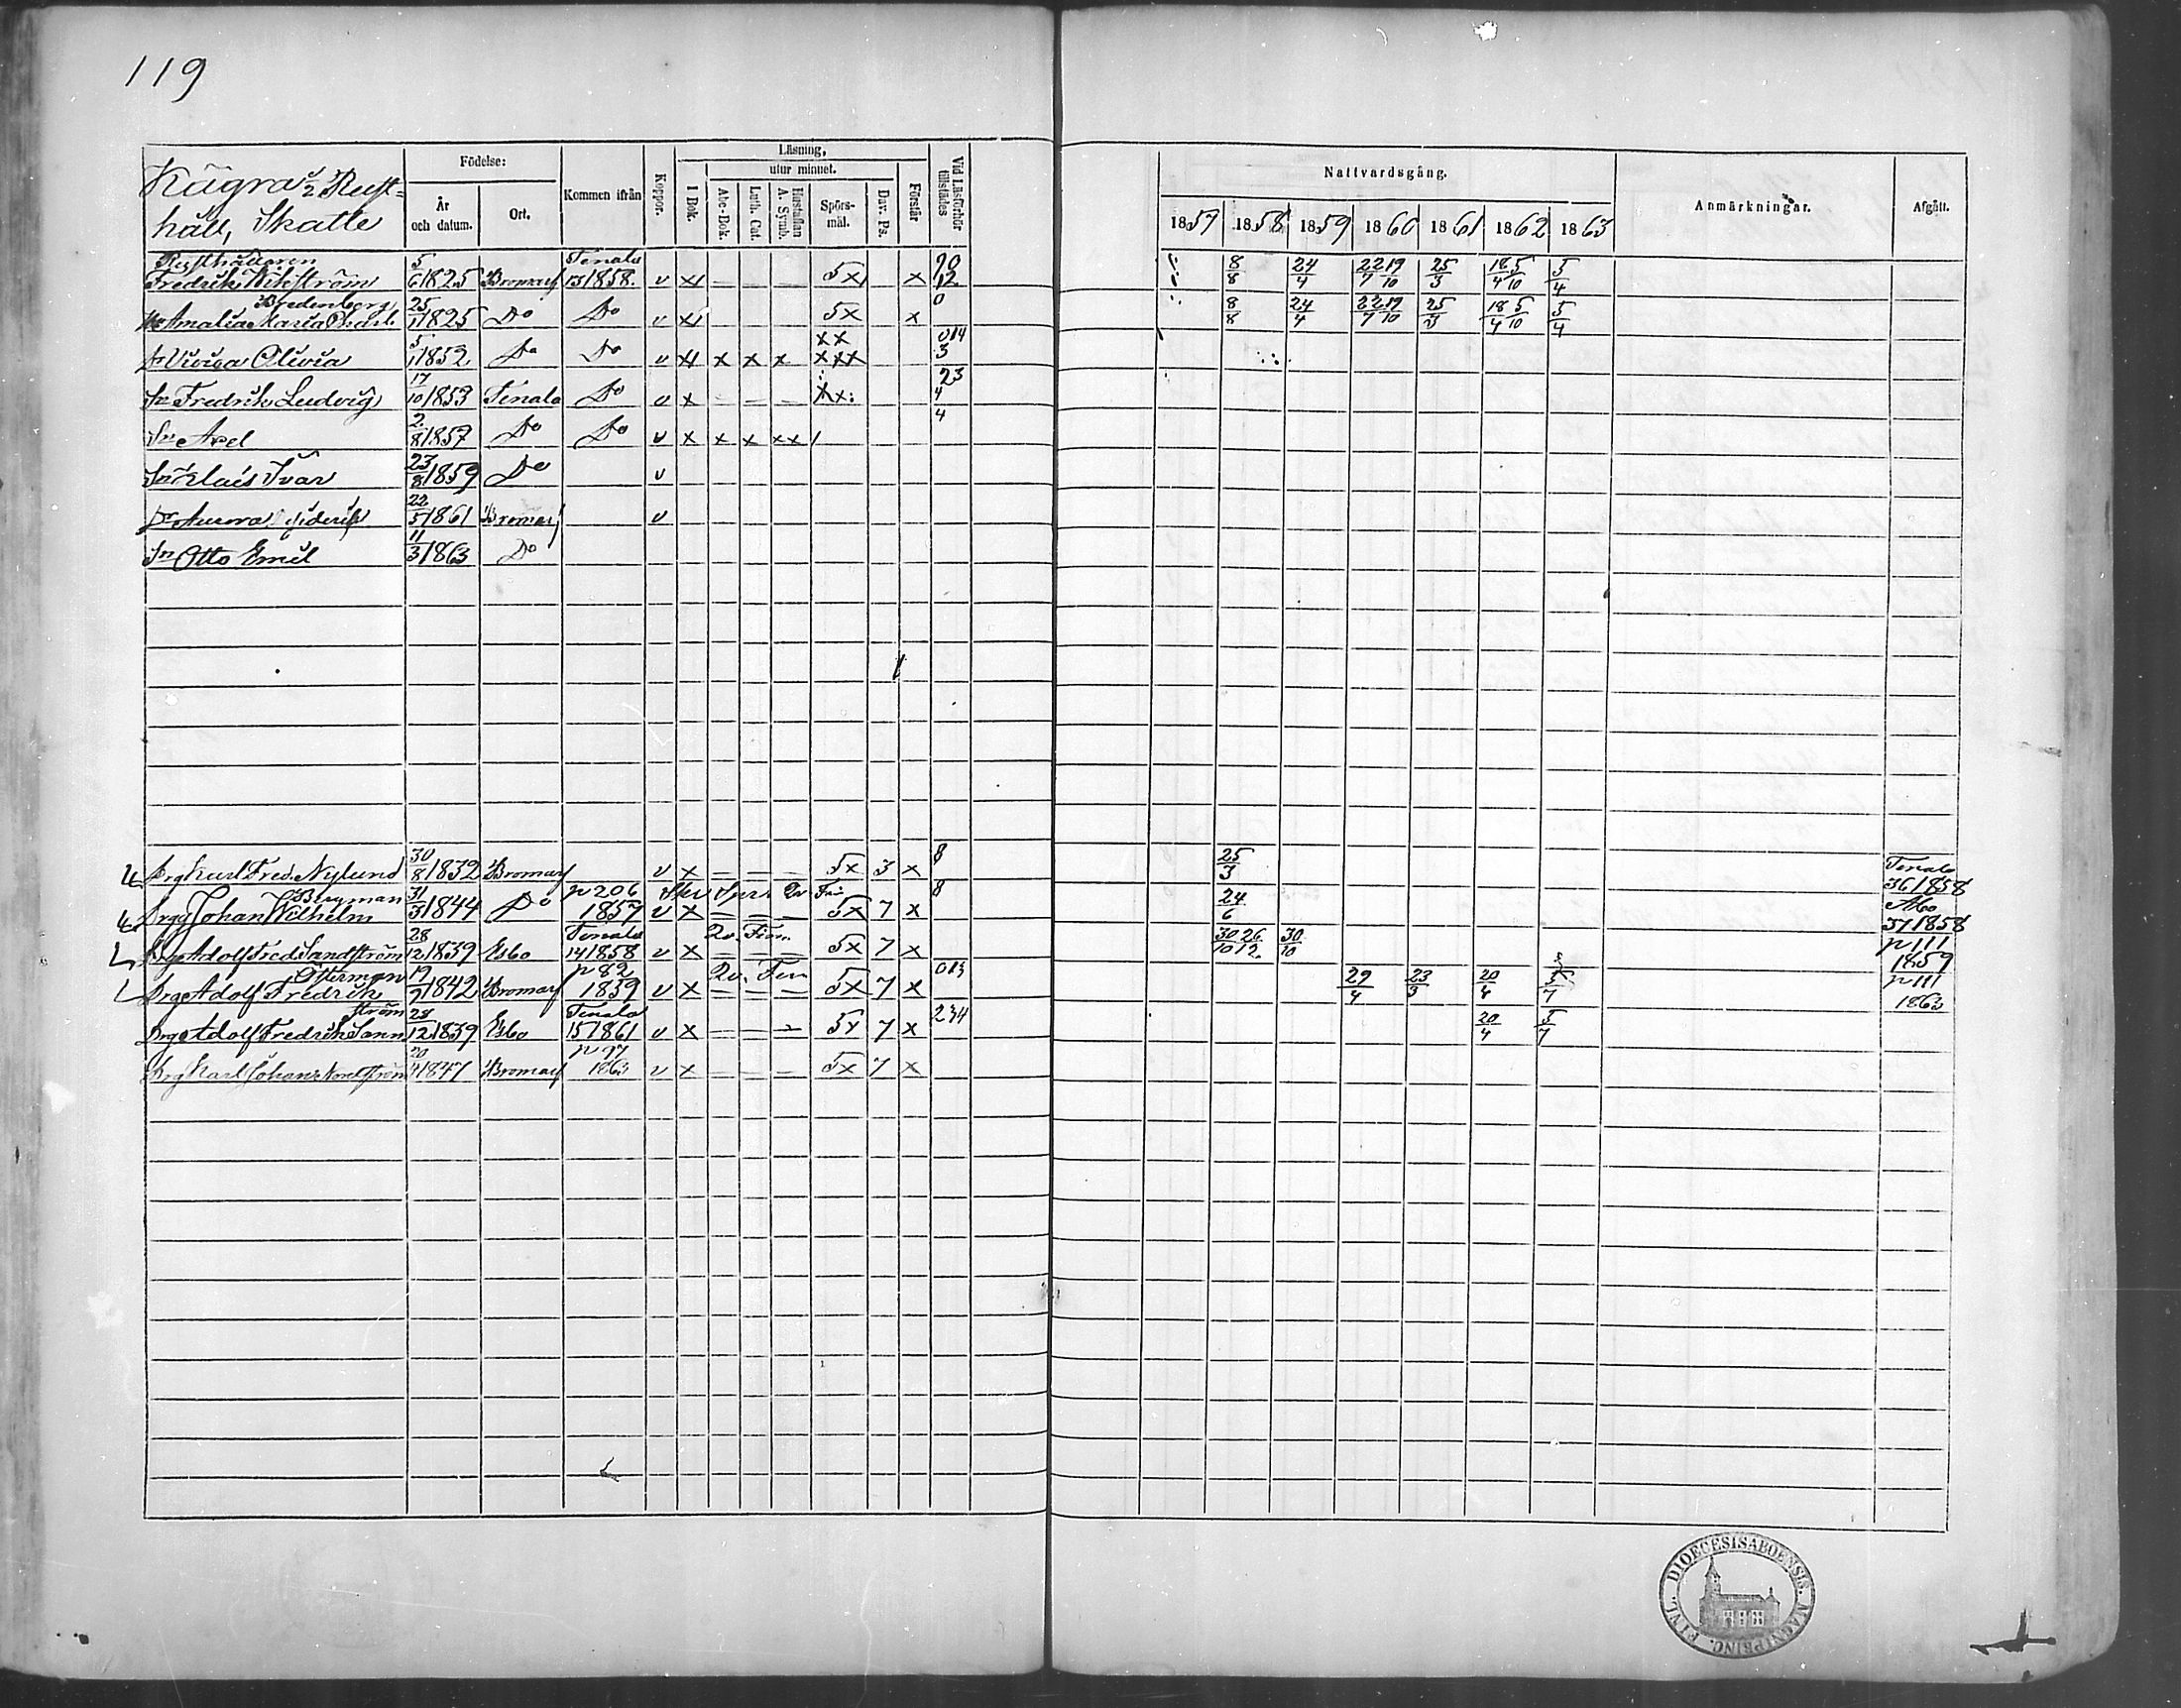 119
Födelse:
Läsning,
utur minnet.
Kägra 1/2 Rust-
håll, Skatte
År och datum.
Ort.
Kommen ifrån
Koppor.
I Bok.
Abc-Bok.
Luth. Cat.
Hustaflan A. Symb.
Spörs-mål.
Dav. Ps.
Förstår
Vid Läsförhör tillstädes
Nattvardsgång.
Anmärkningar.
Afgått.
1857 1858 1859 1860 1861 1862 1863
Rusthållaren Tenala
Fredrik Wikström 5/6 1825 Bromarf 15/1858. v x — — — 5x x 8/8 24/4 22/7 19/10 25/3 18/4 5/10 5/4
Bredenberg
Amalia Maria 25/11 1825 Do Do v x 5x x 8/8 24/4 22/7 19/10 25/3 18/4 5/10 5/4
Dr Viviga Olivia 5/1 1852 Do Do v x x x x xxx
Sn Fredrik Ludvig 17/10 1853 Tenala Do v x — — —
Sn Axel 2/8 1857 Do Do v x x x xx
Sn Klas Ivar 23/8 1859 Do v
Dr Aurora 22/5 1861 Bromarf v
Sn Otto Emil 11/3 1863 Do
Drg Karl Fred. Nylund 30/8 1832 Bromarf v x — — — 5x 3 x 8 25/3 Tenala 36/1858
Bergman p 206
Drg Johan Wilhelm 31/3 1844 Do 1857 v x — — — 5x 7 x 8 24/6 Åbo 57/1858
Drg Adolf Fred Sandström 28/12 1839 Esbo Tenala 14/1858 v x — — — 5x 7 x 30/10 26/12 30/10 p 111 1859
Österman p 82
Drg Adolf Fredrik 19/9 1842 Bromarf 1859 v x — — — 5x 7 x 29/4 23/3 20/4 5/7 p 111 1863
ström Tenala
Drg Adolf Fredrik Sann 28/12 1839 Esbo 15/1861 v x — — — 5x 7 x 234 20/4 5/7
Drg Karl Johan Nordström 1847 Bromarf p 97 1863 v x — — — 5x 7 x
DIOECESIS ABOENSIS. MAGNI PRINC. FINL.